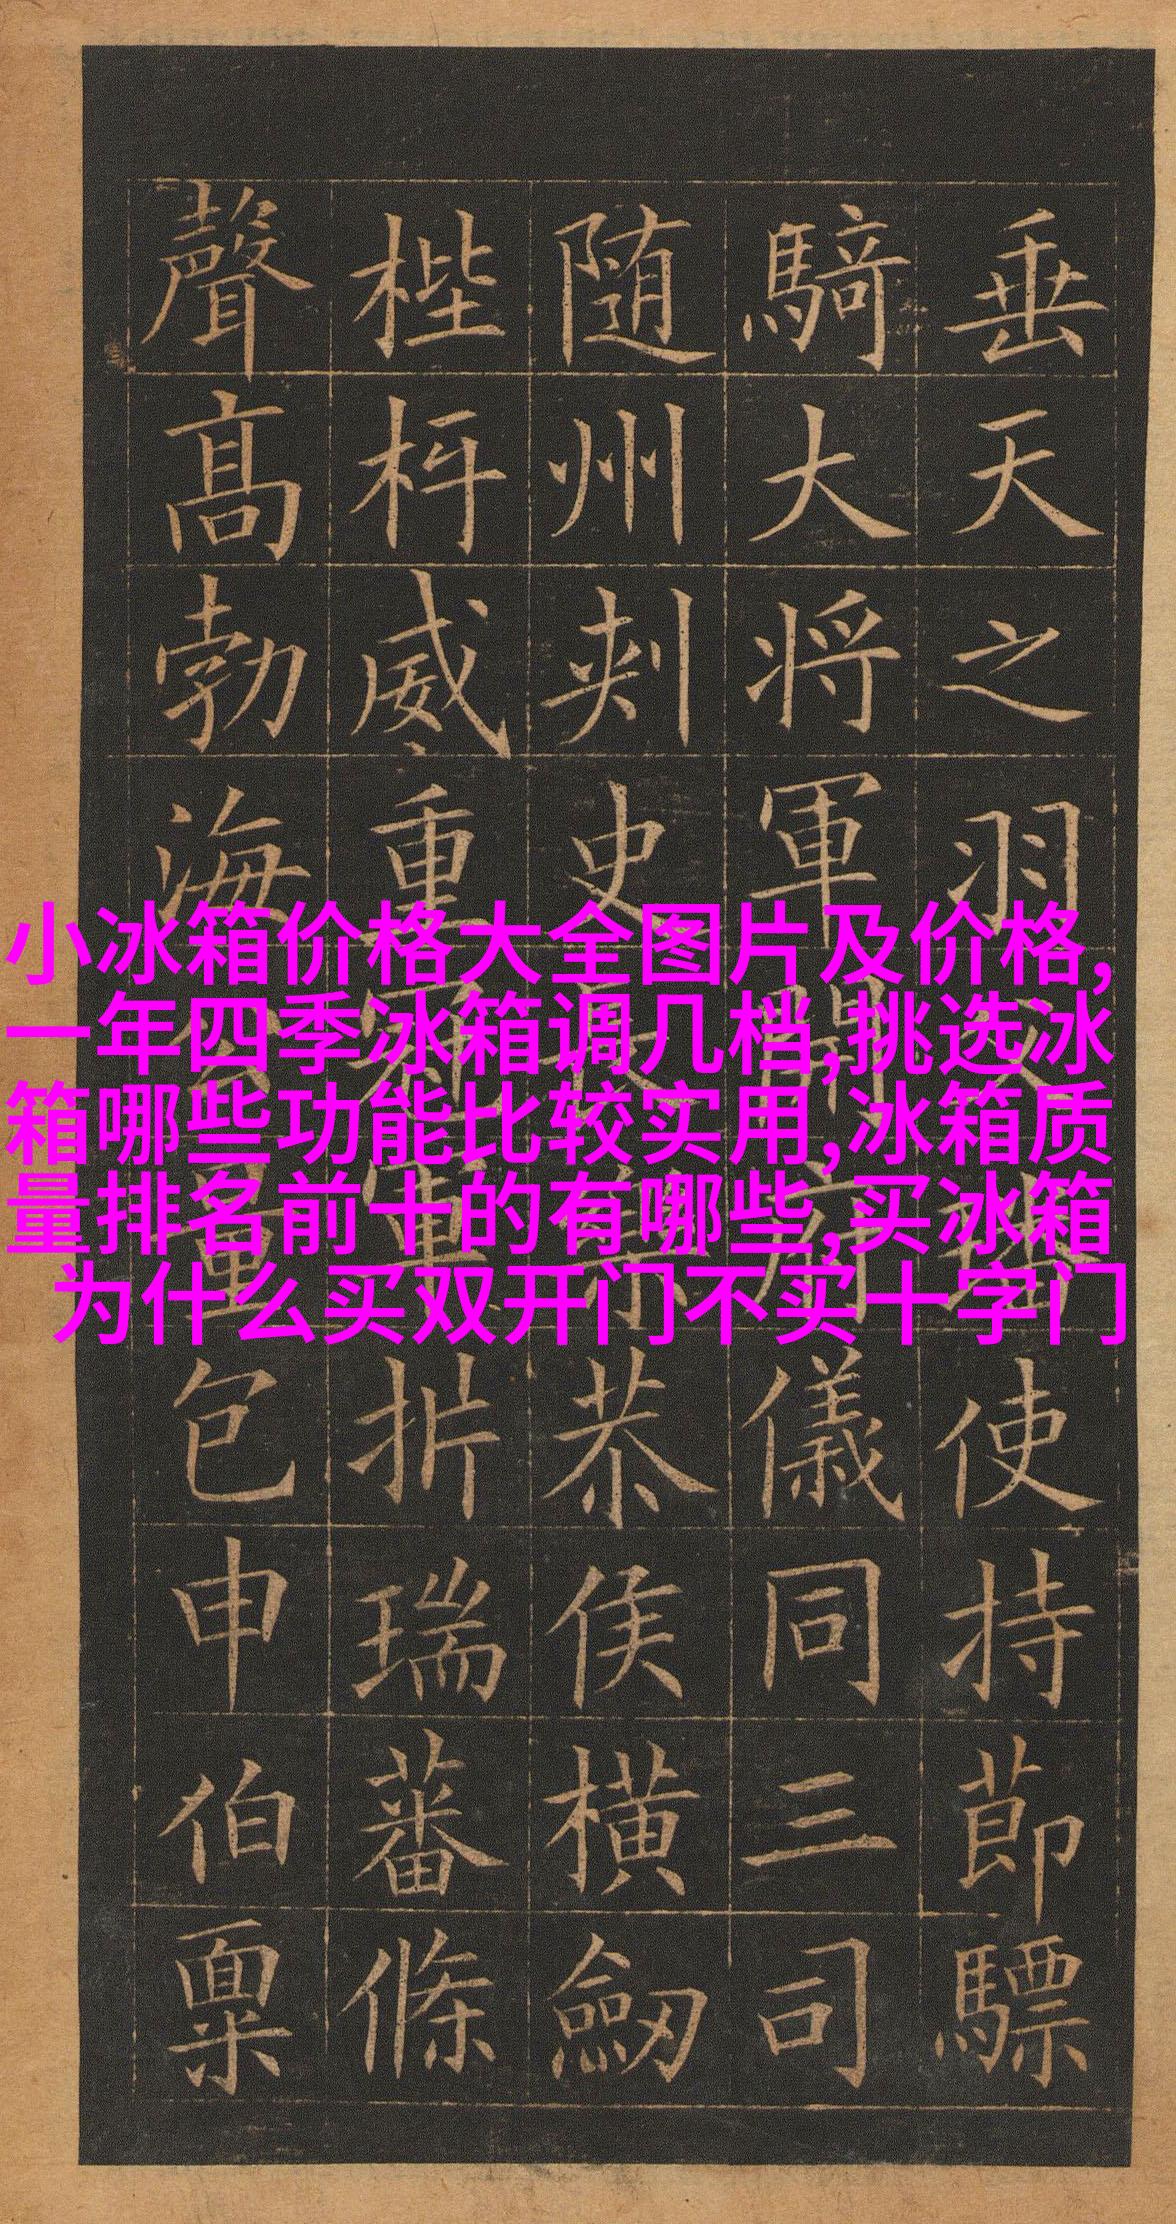 垂天之羽使持節驃
騎大将軍開府儀同三司
随州刾史恭侯横劒
梐枑威重冠軍析瑞蕃條
聲高勃海量包申伯稟
小冰箱价格大全图片及价格,
一年四季冰箱调几档,挑选冰
箱哪些功能比较实用,冰箱质
量排名前十的有哪些,买冰箱
为什么买双开门不买十字门